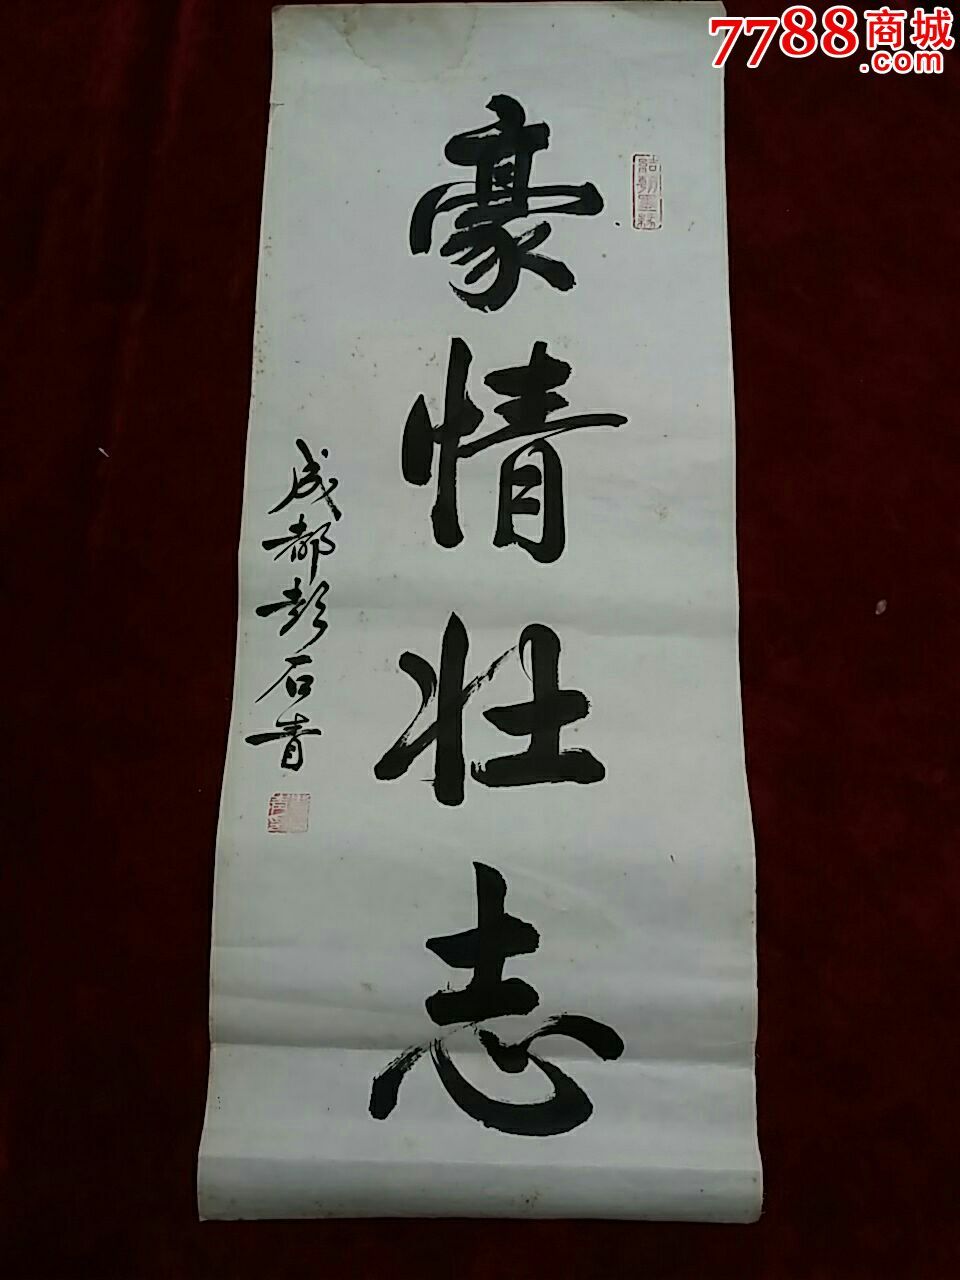 7788商城
.com
豪情壮志
成都彭石青